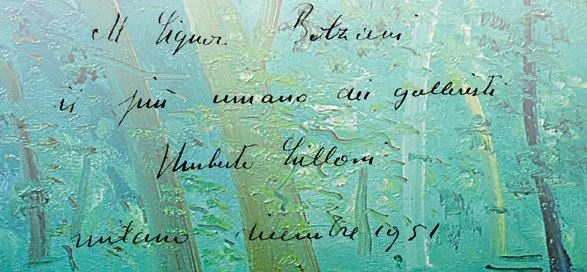 Al Signor Bolzani
il più umano dei galleristi
Umberto Lilloni
milano dicembre 1951